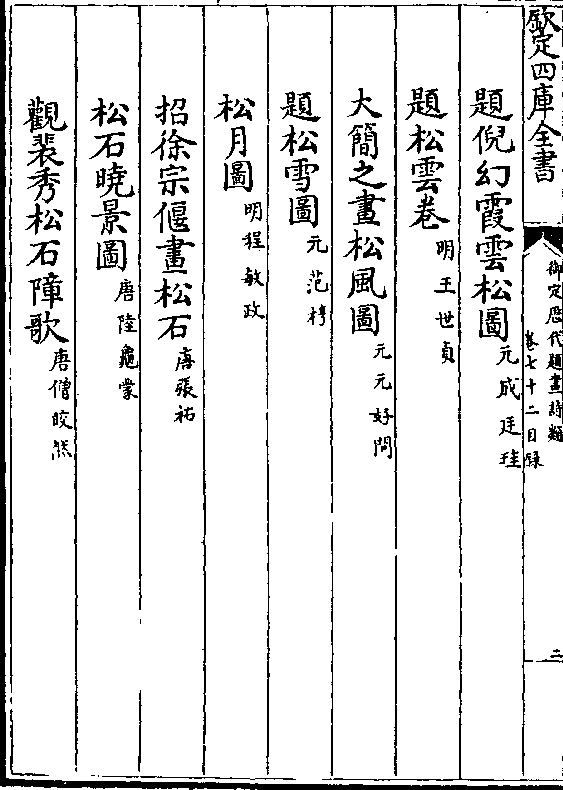 欽定四庫全書
御定歷代題畫詩類
卷七十二目錄
二
題倪幻霞雲松圖 元成廷珪
題松雲卷 明王世貞
大簡之畫松風圖 元元好問
題松雪圖 元范梈
松月圖 明程敏政
招徐宗偃畫松石 唐張祜
松石曉景圖 唐陸龜蒙
觀裴秀松石障歌 唐僧皎然